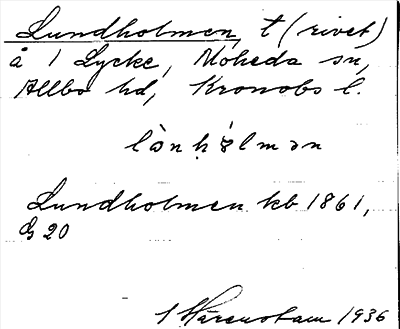 Lundholmen, t (rivet)
å 1 Lycke, Moheda sn,
Allbo hd, Kronobs l.
lònhòlmən
Lundholmen kb 1861,
G 20
1936